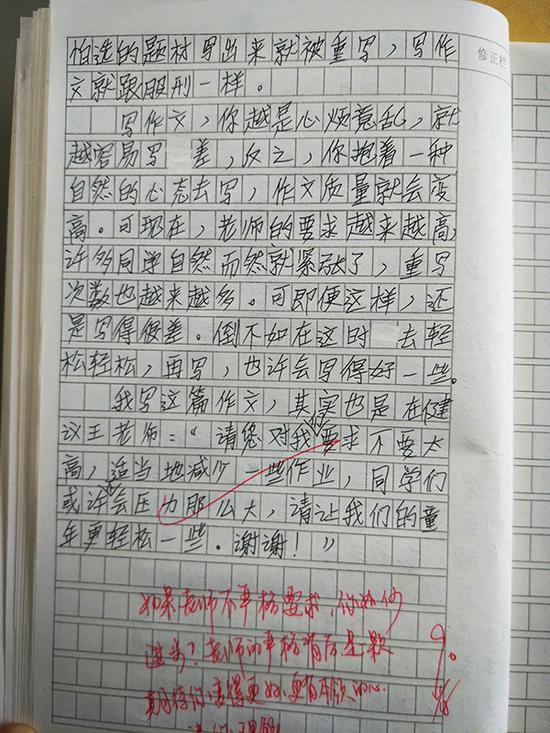 怕选的题材写出来就被重写，写作
文就跟服刑一样。
写作文，你越是心烦意乱，就
越容易写 差，反之，你抱着一种
自然的心态去写，作文质量就会变
高。可现在，老师的要求越来越高，
许多同学自然而然就紧张了，重写
次数也越来越多。可即便这样，还
是写得很差。倒不如在这时 去轻
松轻松，再写，也许会写得好一些。
我写这篇作文，其实也是在建
议王老师：“请您对我们要求不要太
高，适当地减少一些作业，同学们
或许会压力那么大，请让我们的童
年更轻松一些。谢谢！”
如果老师不严格要求，你如何
进步？老师的严格背后是一颗
期待你变得更好、更有本领的心
修正栏